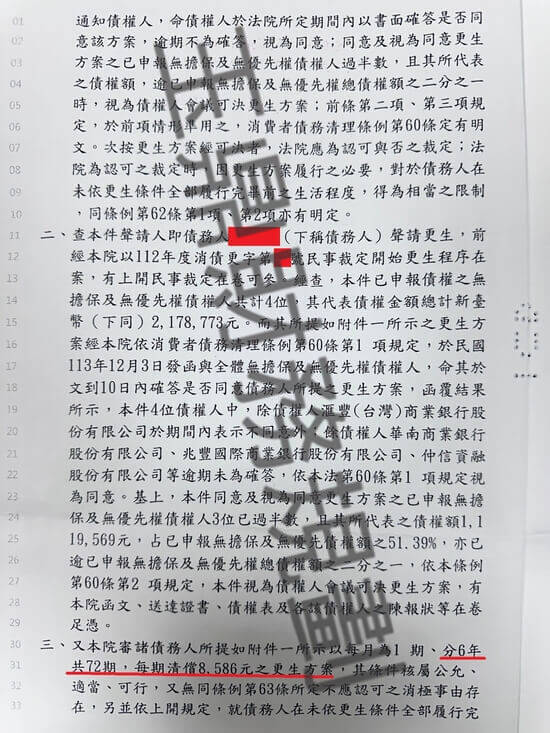 01 通知債權人，命債權人於法院所定期間內以書面確答是否同
02 意該方案，逾期不為確答，視為同意；同意及視為同意更生
03 方案之已申報無擔保及無優先權債權人過半數，且其所代表
04 之債權額，逾已申報無擔保及無優先權總債權額之二分之一
05 時，視為債權人會議可決更生方案；前條第二項、第三項規
06 定，於前項情形準用之，消費者債務清理條例第60條定有明
07 文。次按更生方案經可決者，法院應為認可與否之裁定；法
08 院為認可之裁定時，因更生方案履行之必要，對於債務人在
09 未依更生條件全部履行完畢前之生活程度，得為相當之限制
10 ，同條例第62條第1項、第2項亦有明定。
11 二、查本件聲請人即債務人（下稱債務人）聲請更生，前
12 經本院以112年度消債更字第號民事裁定開始更生程序在
13 案，有上開民事裁定在卷可參。經查，本件已申報債權之無
14 擔保及無優先權債權人共計4位，其代表債權金額總計新臺
15 幣（下同）2,178,773元。而其所提如附件一所示之更生方
16 案經本院依消費者債務清理條例第60條第1 項規定，於民國
17 113年12月3日發函與全體無擔保及無優先權債權人，命其於
18 文到10日內確答是否同意債務人所提之更生方案，函覆結果
19 所示，本件4位債權人中，除債權人滙豐(台灣)商業銀行股
20 份有限公司於期間內表示不同意外，餘債權人華南商業銀行
21 股份有限公司、兆豐國際商業銀行股份有限公司、仲信資融
22 股份有限公司等逾期未為確答，依本法第60條第1 項規定視
23 為同意。基上，本件同意及視為同意更生方案之已申報無擔
24 保及無優先權債權人3位已過半數，且其所代表之債權額1,1
25 19,569元，占已申報無擔保及無優先權總債權額之51.39%，亦已
26 逾已申報無擔保及無優先權總債權額之二分之一，依本條例
27 第60條第2 項規定，本件視為債權人會議可決更生方案，有
28 本院函文、送達證書、債權表及各該債權人之陳報狀等在卷
29 足憑。
30 三、又本院審諸債務人所提如附件一所示以每月為1 期、分6年
31 共72期，每期清償8,586元之更生方案，其條件核屬公允、
32 適當、可行，又無同條例第63條所定不應認可之消極事由存
33 在，另並依上開規定，就債務人在未依更生條件全部履行完